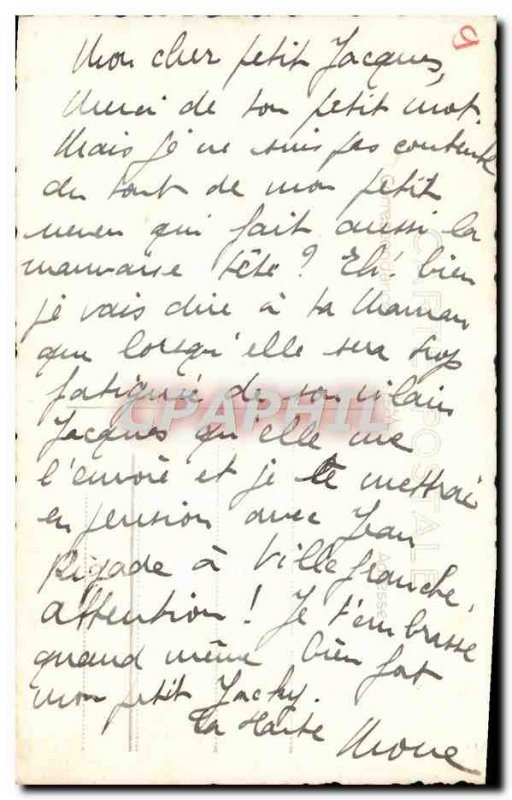 Mon cher petit Jacques,
Merci de ton petit mot.
Mais je ne suis pas contente
du tout de mon petit
neveu qui fait aussi la
mauvaise tête? Eh! bien
je vais dire à ta Maman
que lorsqu'elle sera trop
fatiguée de son vilain
Jacques qu'elle me
l'envoie et je te mettrai
en pension avec Jean
Rigade à Villefranche,
attention! Je t'embrasse
quand même bien fort
mon petit Jacky.
ta
CPAPHIL
CARTE POSTALE
Correspondance
Adresse